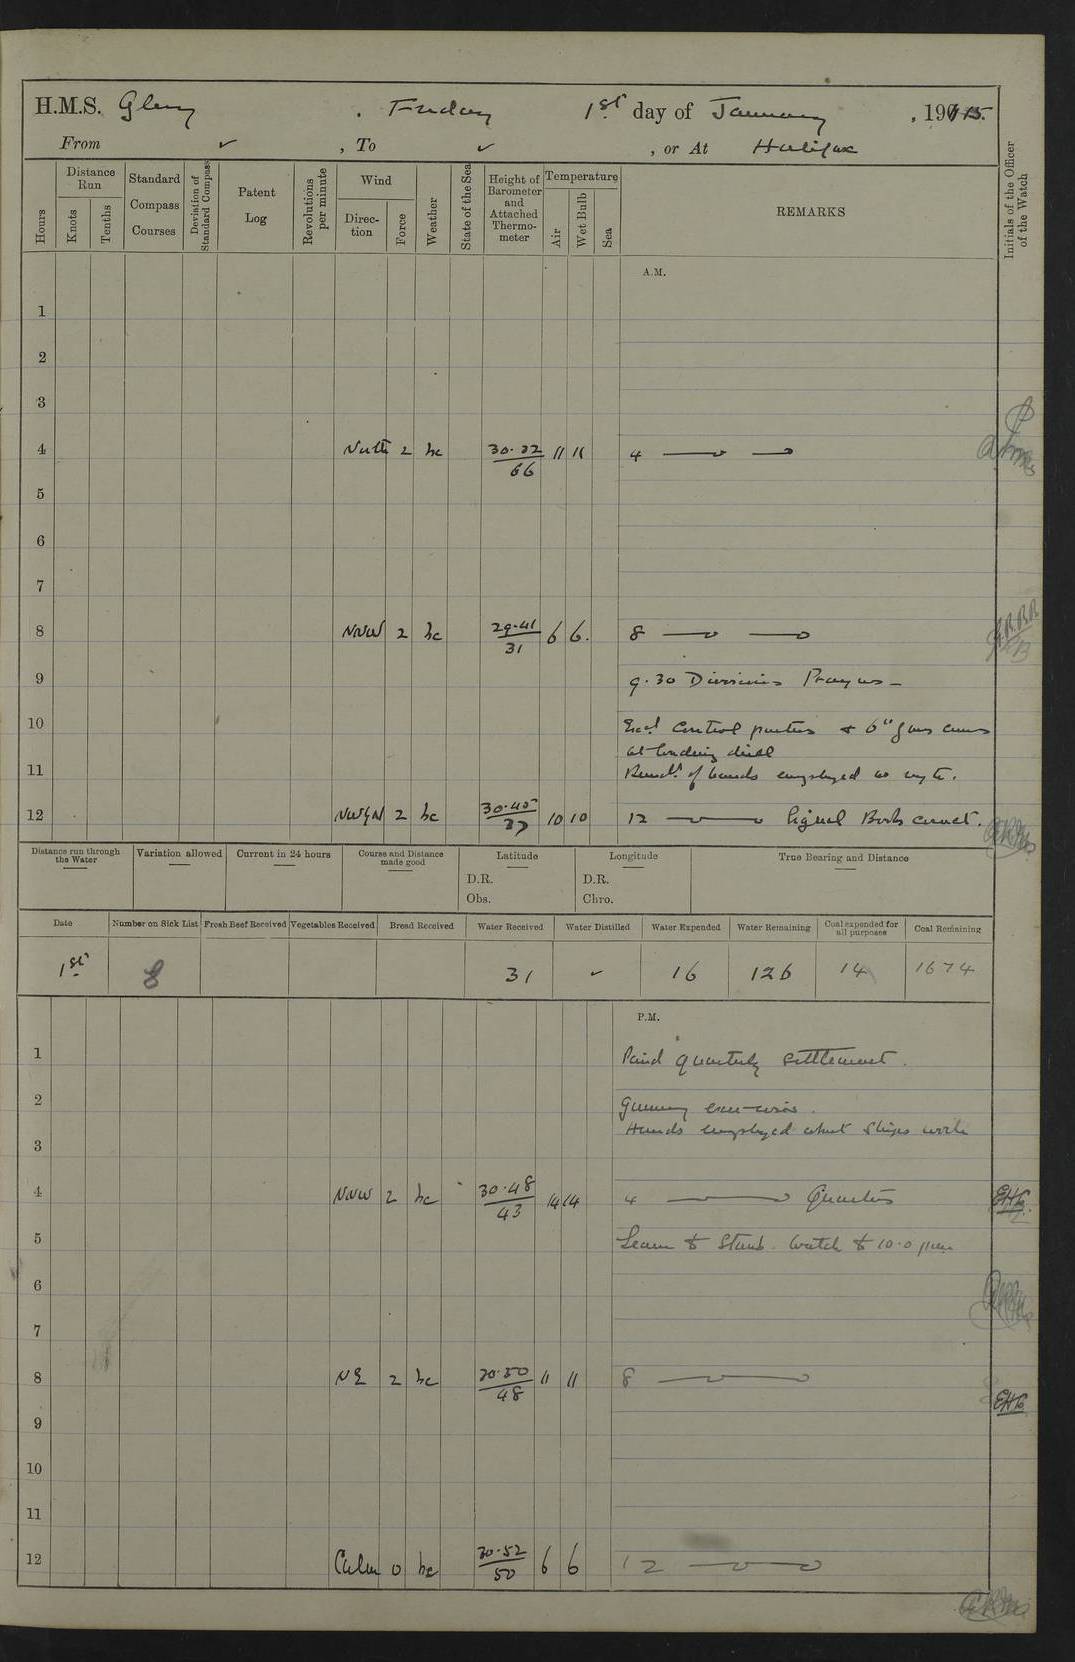 H.M.S. Glory, Friday 1st day of January, 1915.
From ✓, To ✓, or At Halifax
Hours
Distance Run
Knots
Tenths
Standard Compass Courses
Deviation of Standard Compass
Patent Log
Revolutions per minute
Wind
Direction
Force
Weather
State of the Sea
Height of Barometer and Attached Thermometer
Temperature
Air
Wet Bulb
Sea
REMARKS
Initials of the Officer of the Watch
A.M.
1
2
3
4 North 2 bc 30.32 66 11 11 4
5
6
7
8 NNW 2 bc 29.41 31 6 6. 8
9 9.30 Divisions Prayers
10 Exd. Control parties & 6" guns crews
at loading drill
11 Remdr. of hands employed as reqte.
12 NWbyN 2 bc 30.45 37 10 10 12 Signal Books correct.
Distance run through the Water
Variation allowed
Current in 24 hours
Course and Distance made good
Latitude
D.R.
Obs.
Longitude
D.R.
Chro.
True Bearing and Distance
Date Number on Sick List Fresh Beef Received Vegetables Received Bread Received Water Received Water Distilled Water Expended Water Remaining Coal expended for all purposes Coal Remaining
1st 8 31 ✓ 16 126 14 1674
P.M.
1 Paid quarterly settlement.
2 Gunnery exercise.
Hands employed about Ships work
3
4 NNW 2 bc 30.48 43 14 14 4 Quarters EHG.
5 Leave to Starb. Watch to 10.0 pm
6
7
8 NE 2 bc 30.50 48 11 11 8 EHG
9
10
11
12 Calm 0 bc 30.52 50 6 6 12